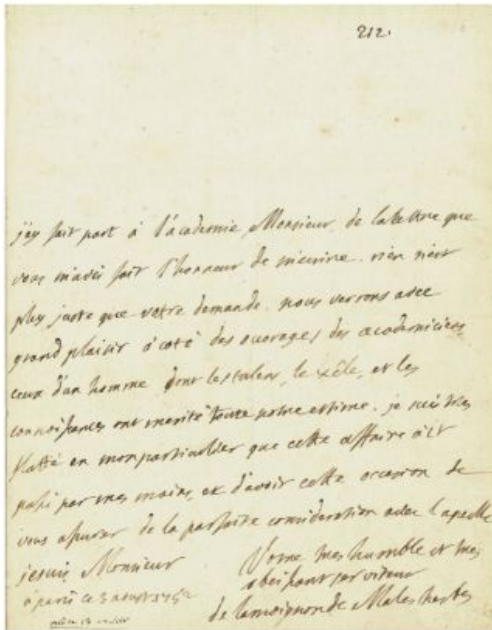 212.
j'ay fait part à l'academie Monsieur de la lettre que
vous m'avés fait l'honneur de m'ecrire. rien n'est
plus juste que votre demande. nous verrons avec
grand plaisir à coté des ouvrages des academiciens
ceux d'un homme dont les talens, le zêle, et les
connoissances ont merité toute notre estime. je suis tres
flatté en mon particulier que cette affaire ait
passé par mes mains, et d'avoir cette occasion de
vous assurer de la parfaite consideration avec laquelle
je suis Monsieur
Votre tres humble et tres
obeissant serviteur
de lamoignon de Malesherbes
à paris ce 3 aoust